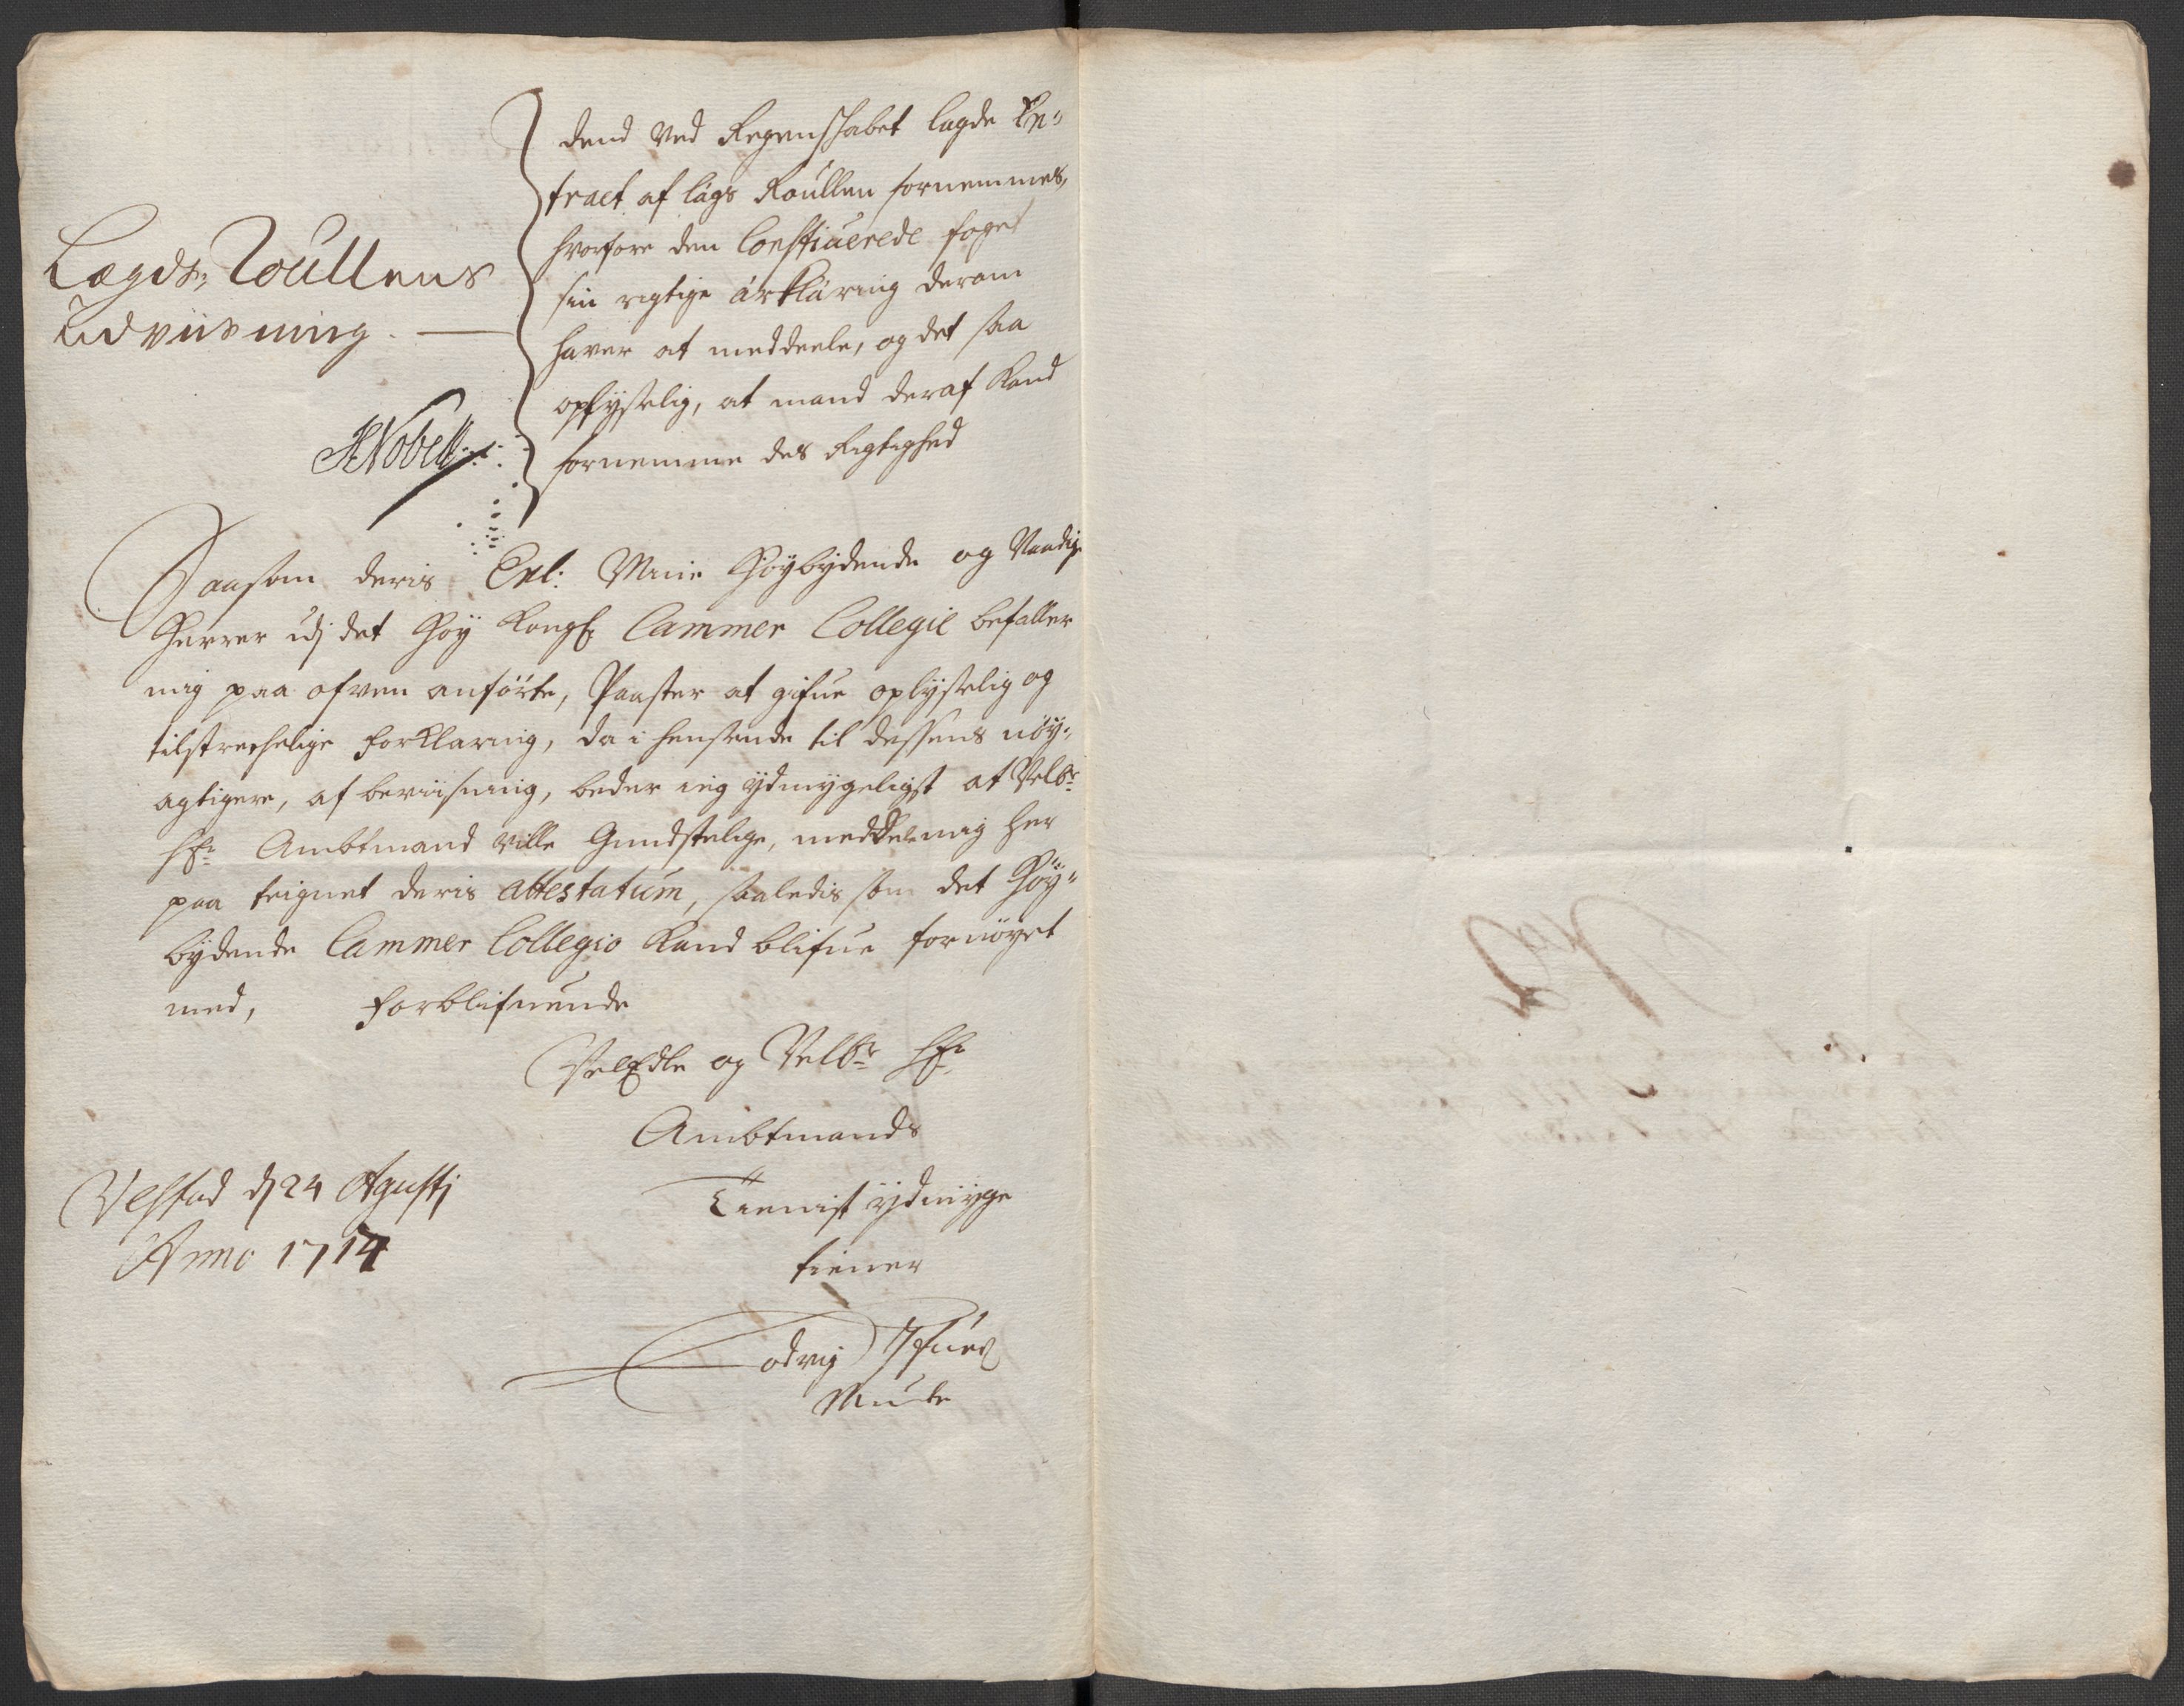 Lægds, Roullens
Udviisning.
HNobell
dend ved Regenskabet lagde Ex-
tract af lägs Roullen fornemmes,
hvorfore den Constiuerede foget
sin rigtige ärkläring derom
haver at meddeele, og det saa
oplÿselig, at mand deraf Kand
fornemme des Rigtighed
Saasom deris Exl: Mine Høÿbÿdende og Naadige
Herrer udj det Høÿ Kongl: Cammer Collegie befaller
mig paa ofven anførte, Poaster at gifue oplÿselig og
tilstrechelige forklaring, da i henseende til dessens nøÿ-
agtigere, af beviisning, beder ieg ÿdmygeligst at Velbr:
Hr: Ambtmand ville Gundstelige, meddele mig her
paa teignet deris attestatum, saaledis som det Høÿ-
bÿdende Cammer Collegio Kand blifue fornøÿet
med, forblifuende
VelEdle og Velbr: Hr:
Ambtmands
Tienist ÿdmÿge
tiener
Lodvig
Munte
d 24 Agustj
Anno 1714